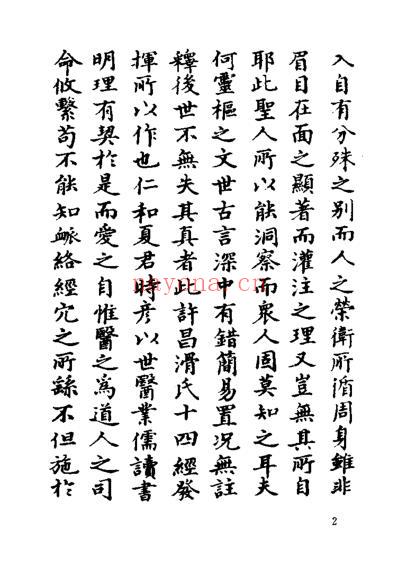 入自有分殊之別而人之榮衛所循周身雖非
眉目在面之顯著而灌注之理又豈無其所自
耶此聖人所以能洞察而衆人固莫知之耳夫
何靈樞之文世古言深中有錯簡易置況無註
釋後世不無失其真者此許昌滑氏十四經發
揮所以作也仁和夏君時彦以世醫業儒讀書
明理有契於是而愛之自惟醫之為道人之司
命攸繫苟不能知脈絡經穴之所繇不但施於
nayona.cn
2